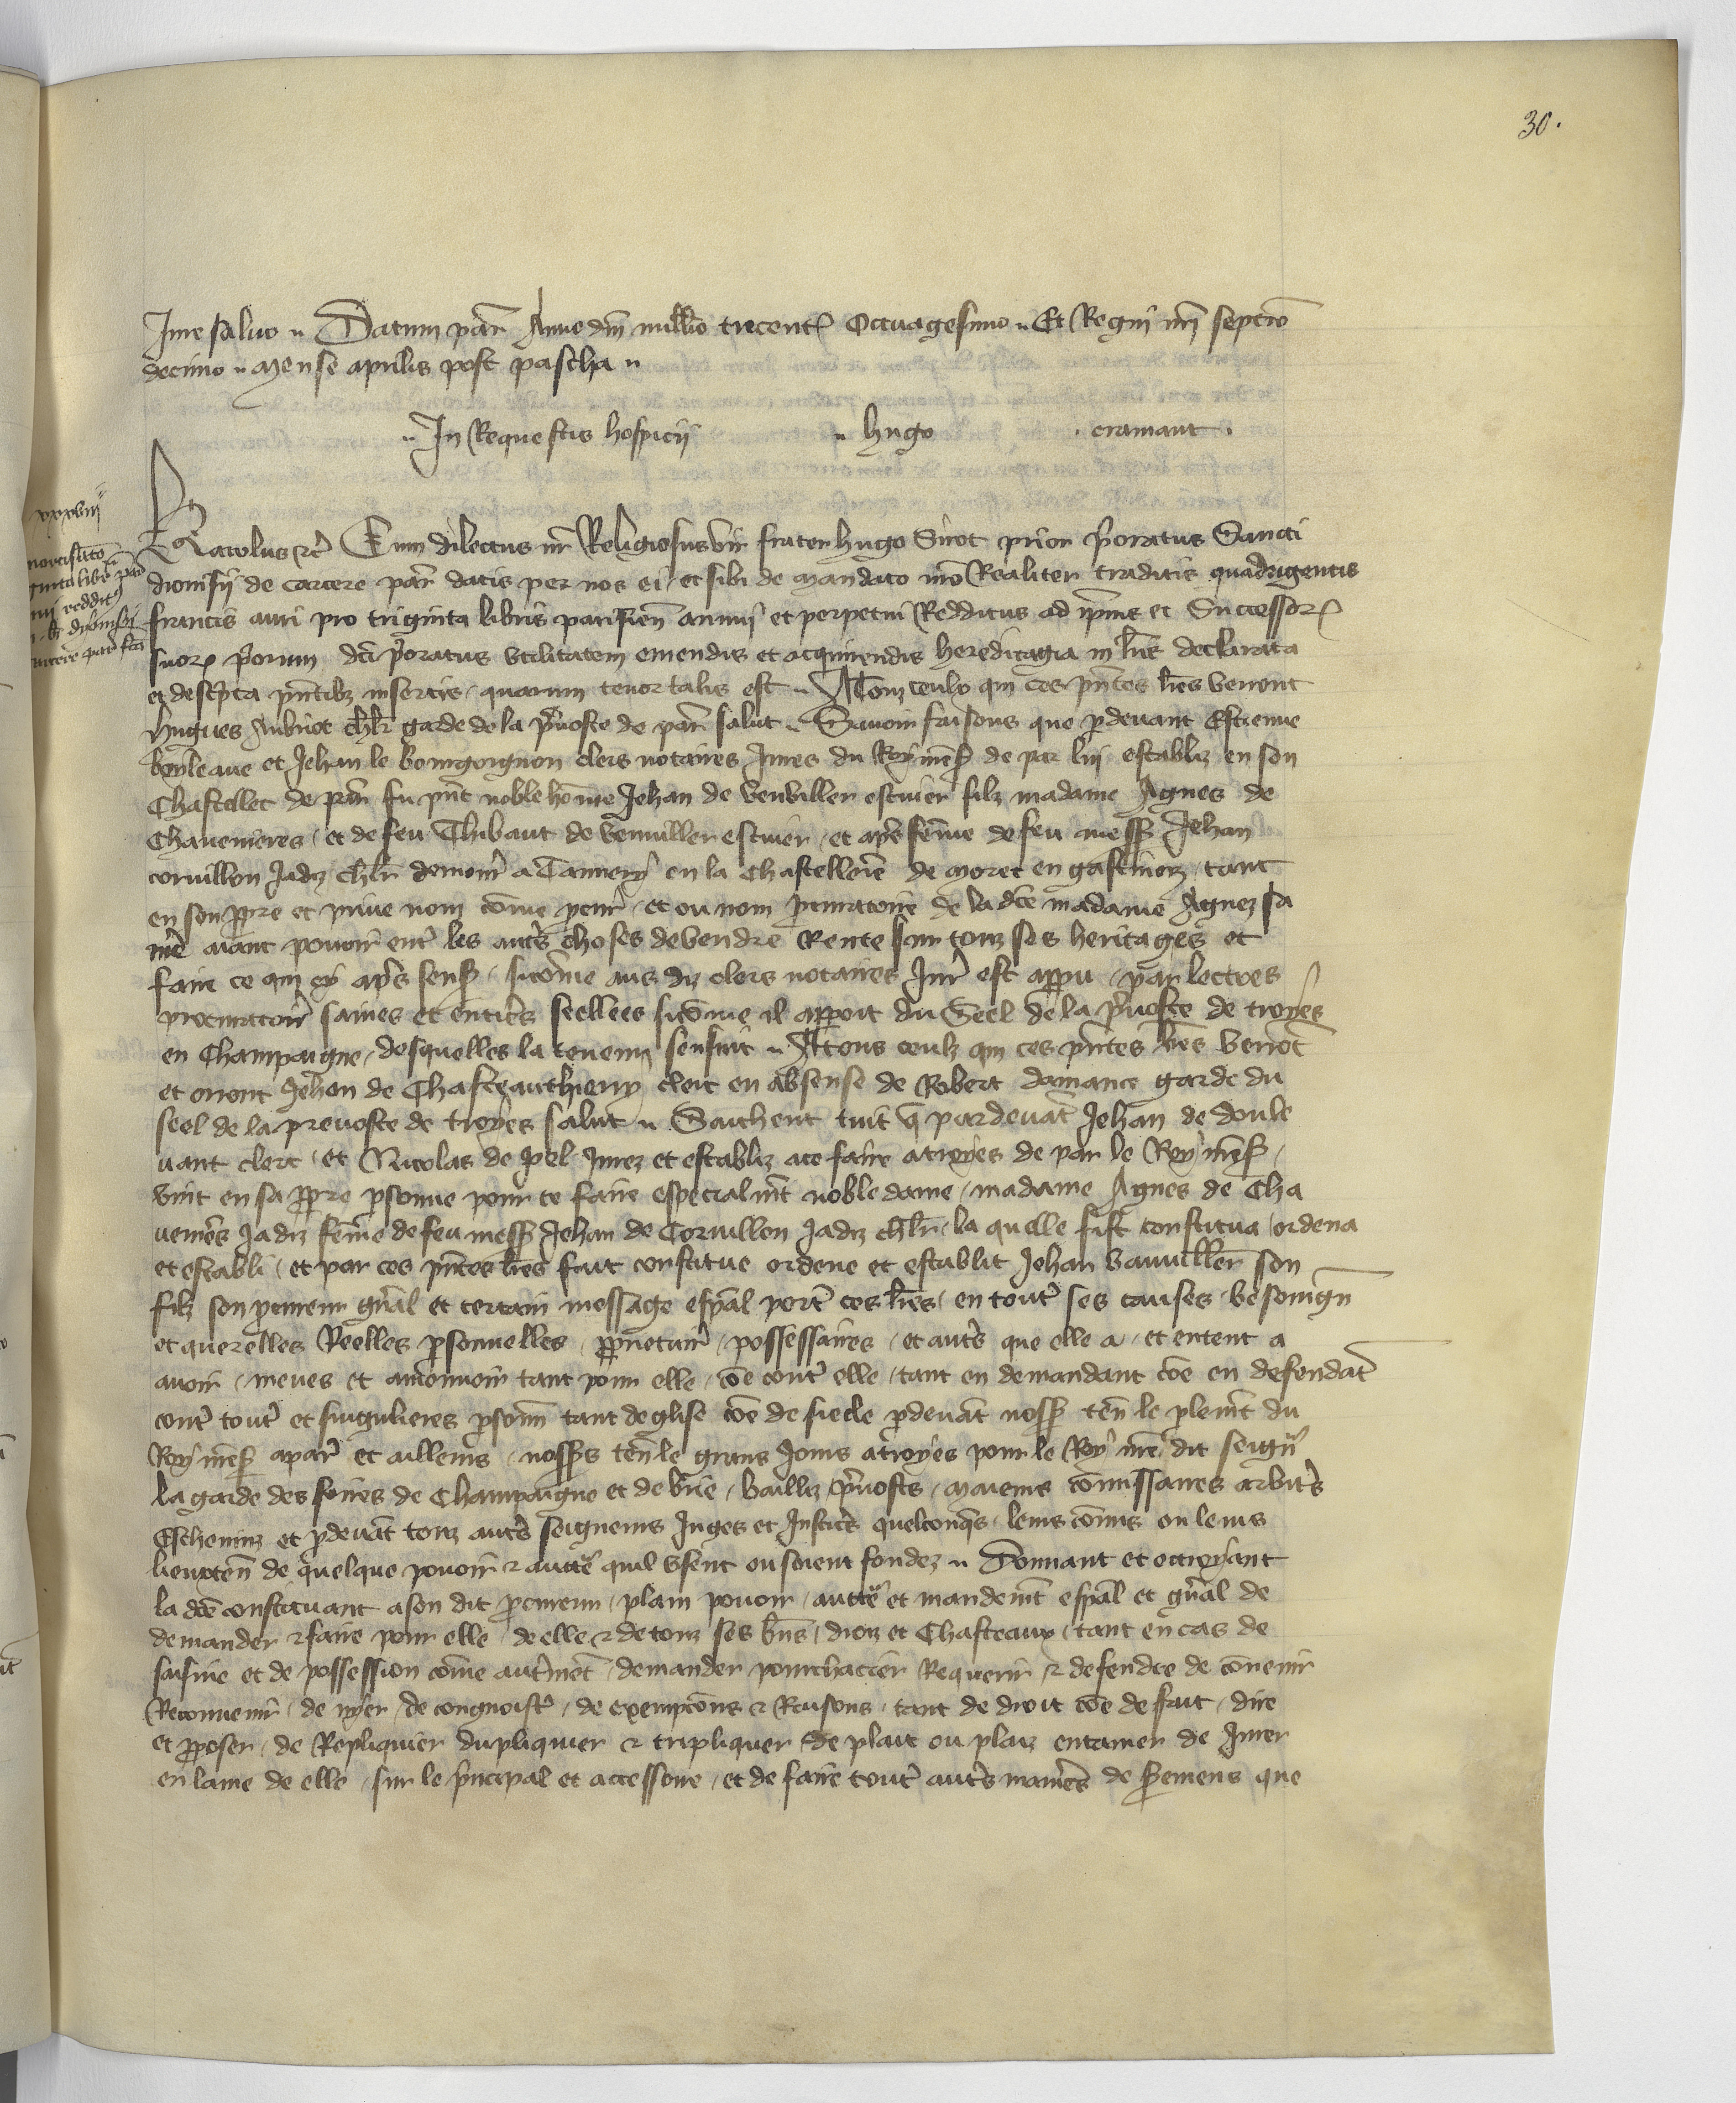 30.
Jure saluo ·· Datum par̃ Anno dñi mill̃io trecentẽ Octuagesimo ·· Et Regni nr̃i septio
decimo ·· Mense aprilis post pascha ··
·· In Requestis hospicij ·· hugo · cramant ·
xxxviij
Karolus &c̃ Cum dilectus nr̃ Religiosus vir frater hugo Sirot prior p̃oratus Sancti
dionisij de carcere par̃ datis per nos ei et sibi de mandato nr̃o Realiter traditis quadrigentis
francis auri pro triginta libris parisieñ annui et perpetui Redditus ad ip̃ius et Successorꝝ
suorꝝ p̃orum dc̃i p̃oratus vtilitatem emendis et acquirendis hereditagia in lr̃is declarata
et descp̃ta pñtibꝫ insertis / quarum tenor talis est ·· A Touz ceulx qui ces pñtes lr̃es verront
Hugues Aubriot chlr̃ garde de la p̃uoste de par̃ salut ·· Sauoir faisons que ꝑdeuant Estienne
boyleaue et Jehan le bourgoignon clers notaires Jures du Roy nr̃eſ de par lui establiz en son
Chastellet de par̃ fu pñt noble hõme Jehan de venviller escuier filz madame Agnes de
Chauenieres / et de feu Thibaut de venuiller escuier / et apr̃s fẽme de feu messſ Jehan
coruillon Jadiz chlr̃ demour̃ a Tannery en la Chastellerie de Moret en gastinoiz / tant
en son ꝓpre et priue nom cõme ꝓcur̃ / et ou nom ꝓcuratoire de la dc̃e madame Agnez sa
mer̃e aiant pouoir entr̃ les autr̃s choses de vendre Rente sur touz ses heritages et
faire ce qui cy apr̃s sensſ / sicõme aus diz clers notaires Jur̃ est apparu / par lectres
procuratoir̃ saines et entier̃s seellees sicõme il apparoit du Seel de la p̃uoste de troyes
en Champaigne / desquelles la teneur sensuit ·· A tous ceulz qui ces pñtes lr̃es verrõt
et orront Jehan de Chasteauthierry clerc en absense de Robert damance garde du
seel de la preuoste de troyes salut ·· Saichent tuit q̃ pardeuãt Jehan de doule
uant clerc / et Nicolas de pel Jurez et establiz a ce faire a troyes de par le Roy nr̃eſ /
vint en sa ꝓpre ꝑsonne pour ce faire especialmt̃ noble dame / madame Agnes de Cha
venier̃s Jadiz fẽme de feu messſ Jehan de Coruillon Jadiz chlr̃ / la quelle fist constitua / ordena
et establi / et par ces pñtes lr̃es fait constitue ordene et establit Jehan vauuiller son
filz son ꝓcureur gñal et certain message esp̃al port̃ ces lr̃es / en tout̃ ses causes / besoingñ
et querelles Reelles ꝑsonnelles / ꝓprietair̃ / possessaires / et autr̃s que elle a / et entent a
auoir / meues et amõuoir tant pour elle / cõe contr̃ elle / tant en demandant cõe en defendãt
contr̃ tout̃ et singulieres ꝑsoñn tant deglise cõe de siecle ꝑdeuãt nosſ teñ le ꝑlemt̃ du
Roy nr̃eſ a par̃ et ailleurs / nosſs teñ le grans Jours a troyes pour le Roy nr̃e dit seigñ
la garde des foires de Champaigne et de brie / bailliz / p̃uosts / maieurs cõmissaires arbitr̃s
Escheuinz et ꝑdeuãt touz autr̃s seigneurs Juges et Justicr̃s quelconq̃s / leurs cõmis ou leurs
lieuxteñ de quelque pouoir & auctẽ quil vsent ou soient fondez ·· Donnant et ottroyant
la dc̃e constituant a son dit ꝓcureur / plain pouoir / auctẽ et mandemt̃ esp̃al et gñal de
demander & faire pour elle / de elle & de touz ses bñs / droiz et Chasteaux / tant en cas de
saisine et de possession cõme autr̃mẽt / demander pourchacier Requerir & defendre de cõuenir
Reconuenir̃ / de nyer / de congnoistr̃ / de exempcõns & Raisons / tant de droit cõe de fait / dire
et ꝓposer / de Repliquier dupliquier & tripliquer de plait ou plaiz entamer de Jurer
en lame de elle / sur le p̃ncipal et accessoire / et de faire tout̃ autr̃s manier̃s de ſemens que